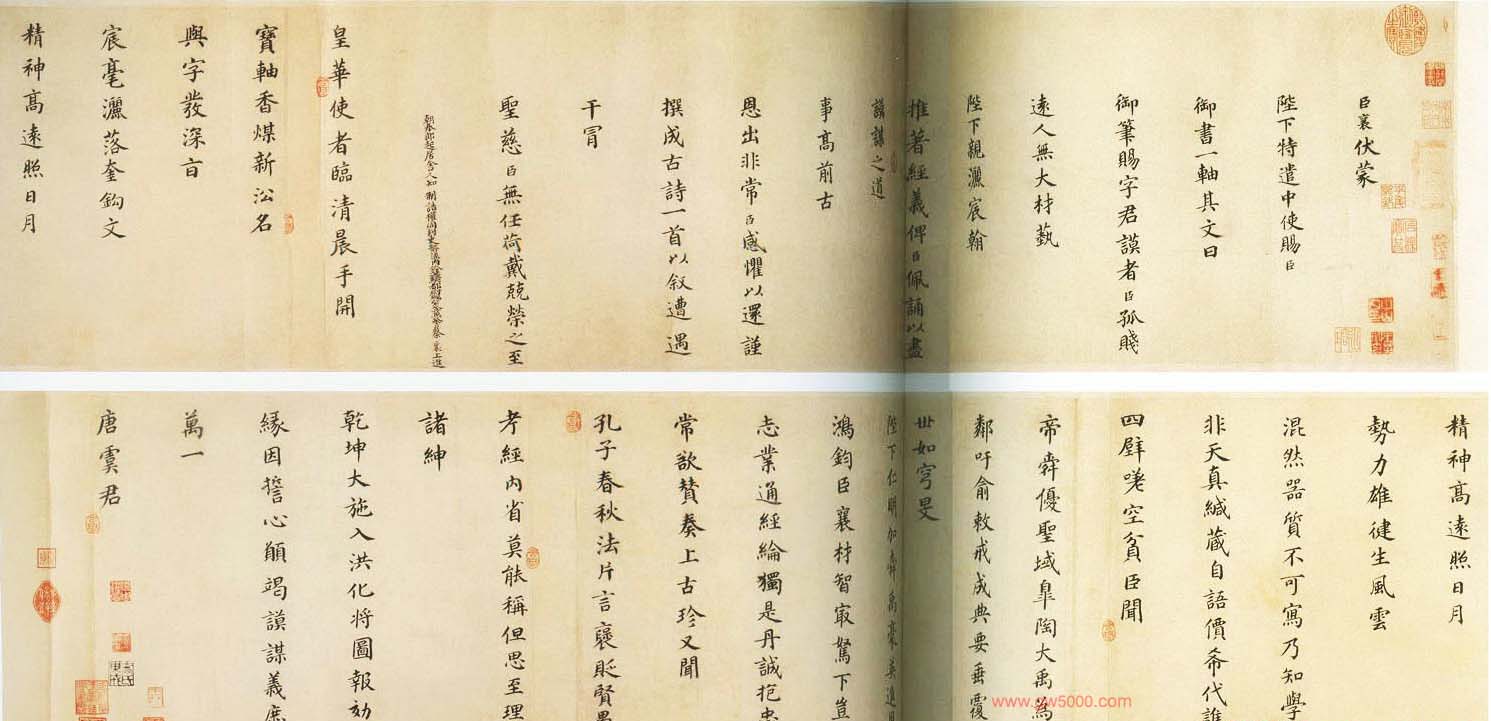 臣襄伏蒙
陛下特遣中使賜臣
御書一軸其文曰
御筆賜字君謨者臣孤賤
遠人無大材藝
陛下親灑宸翰
推著經義俾臣佩誦以盡
謨謀之道
事高前古
恩出非常臣感懼以還謹
撰成古詩一首以叙遭遇
干冐
聖慈臣無任荷戴兢榮之至
朝奉郎起居舍人知制誥權同判吏部流內銓
皇華使者臨清晨手開
寶軸香煤新沄名
與字發深㫖
宸毫灑落奎鈎文
精神髙遠照日月
精神髙遠照日月
勢力雄健生風雲
混然器質不可寫乃知學
非天真緘藏自語價希代誰
四壁嘆空貧臣聞
帝舜優聖域皐陶大禹為
鄰吁俞敕戒成典要垂覆
丗如穹旻
陛下仁明如舜禹豪英進
鴻鈞臣襄材智㝡駑下豈
志業通經綸獨是丹誠抱忠
常欲賛奏上古珍又聞
孔子春秋法片言襃貶賢愚
考經內省莫能稱但思至理
諸紳
乾坤大施入洪化將圖報効
緣因擔心願竭謨謀義庶
萬一
唐虞君
www.yw5000.com